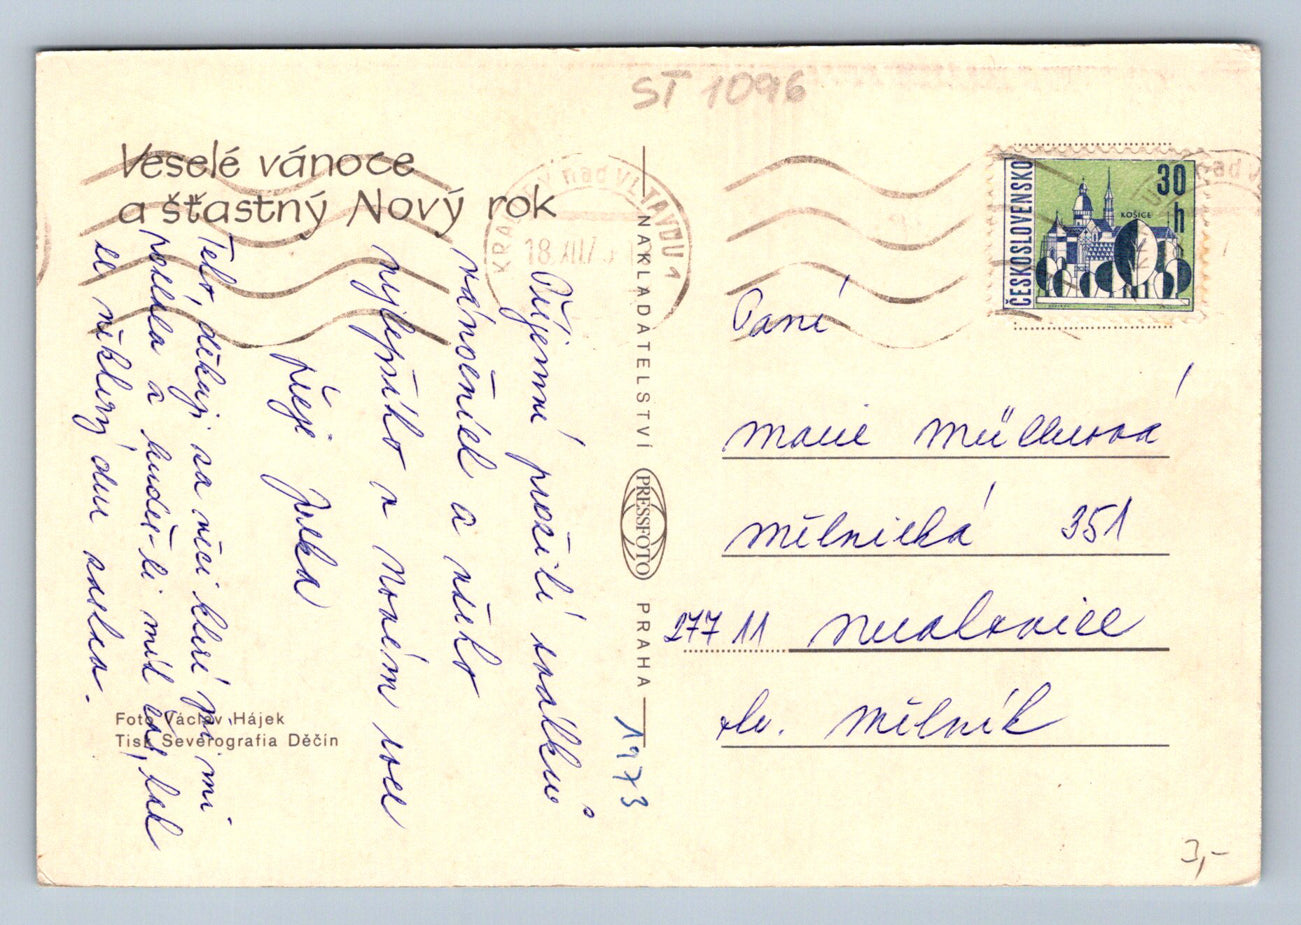 ST 1096
Veselé vánoce
a šťastný Nový rok
KRALUPY nad VLTAVOU 1
18.XII.73
ČESKOSLOVENSKO
30 h
KOŠICE
Příjemné prožití svátků
vánočních a všeho
nejlepšího v Novém roce
přeje Jarka
Teto, děkuji za věci které jsi mi
poslala a budeš-li mít čas, tak
se některý den stav.
Paní
Marie Müllerová
Mělnická 351
277 11 Neratovice
okr. Mělník
NAKLADATELSTVÍ
PRESSFOTO
PRAHA
1973
Foto Václav Hájek
Tisk Severografia Děčín
3,-